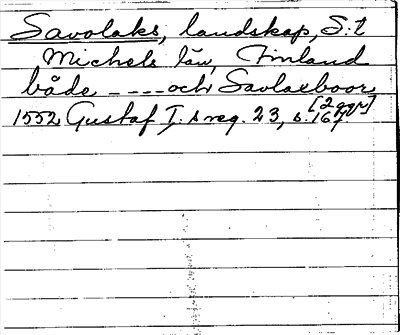 Savolaks, landskap, S:t
Michels län, Finland
både ----och Savlaxboor
[2 ggr]
1552 Gustaf I:s reg. 23, s. 167